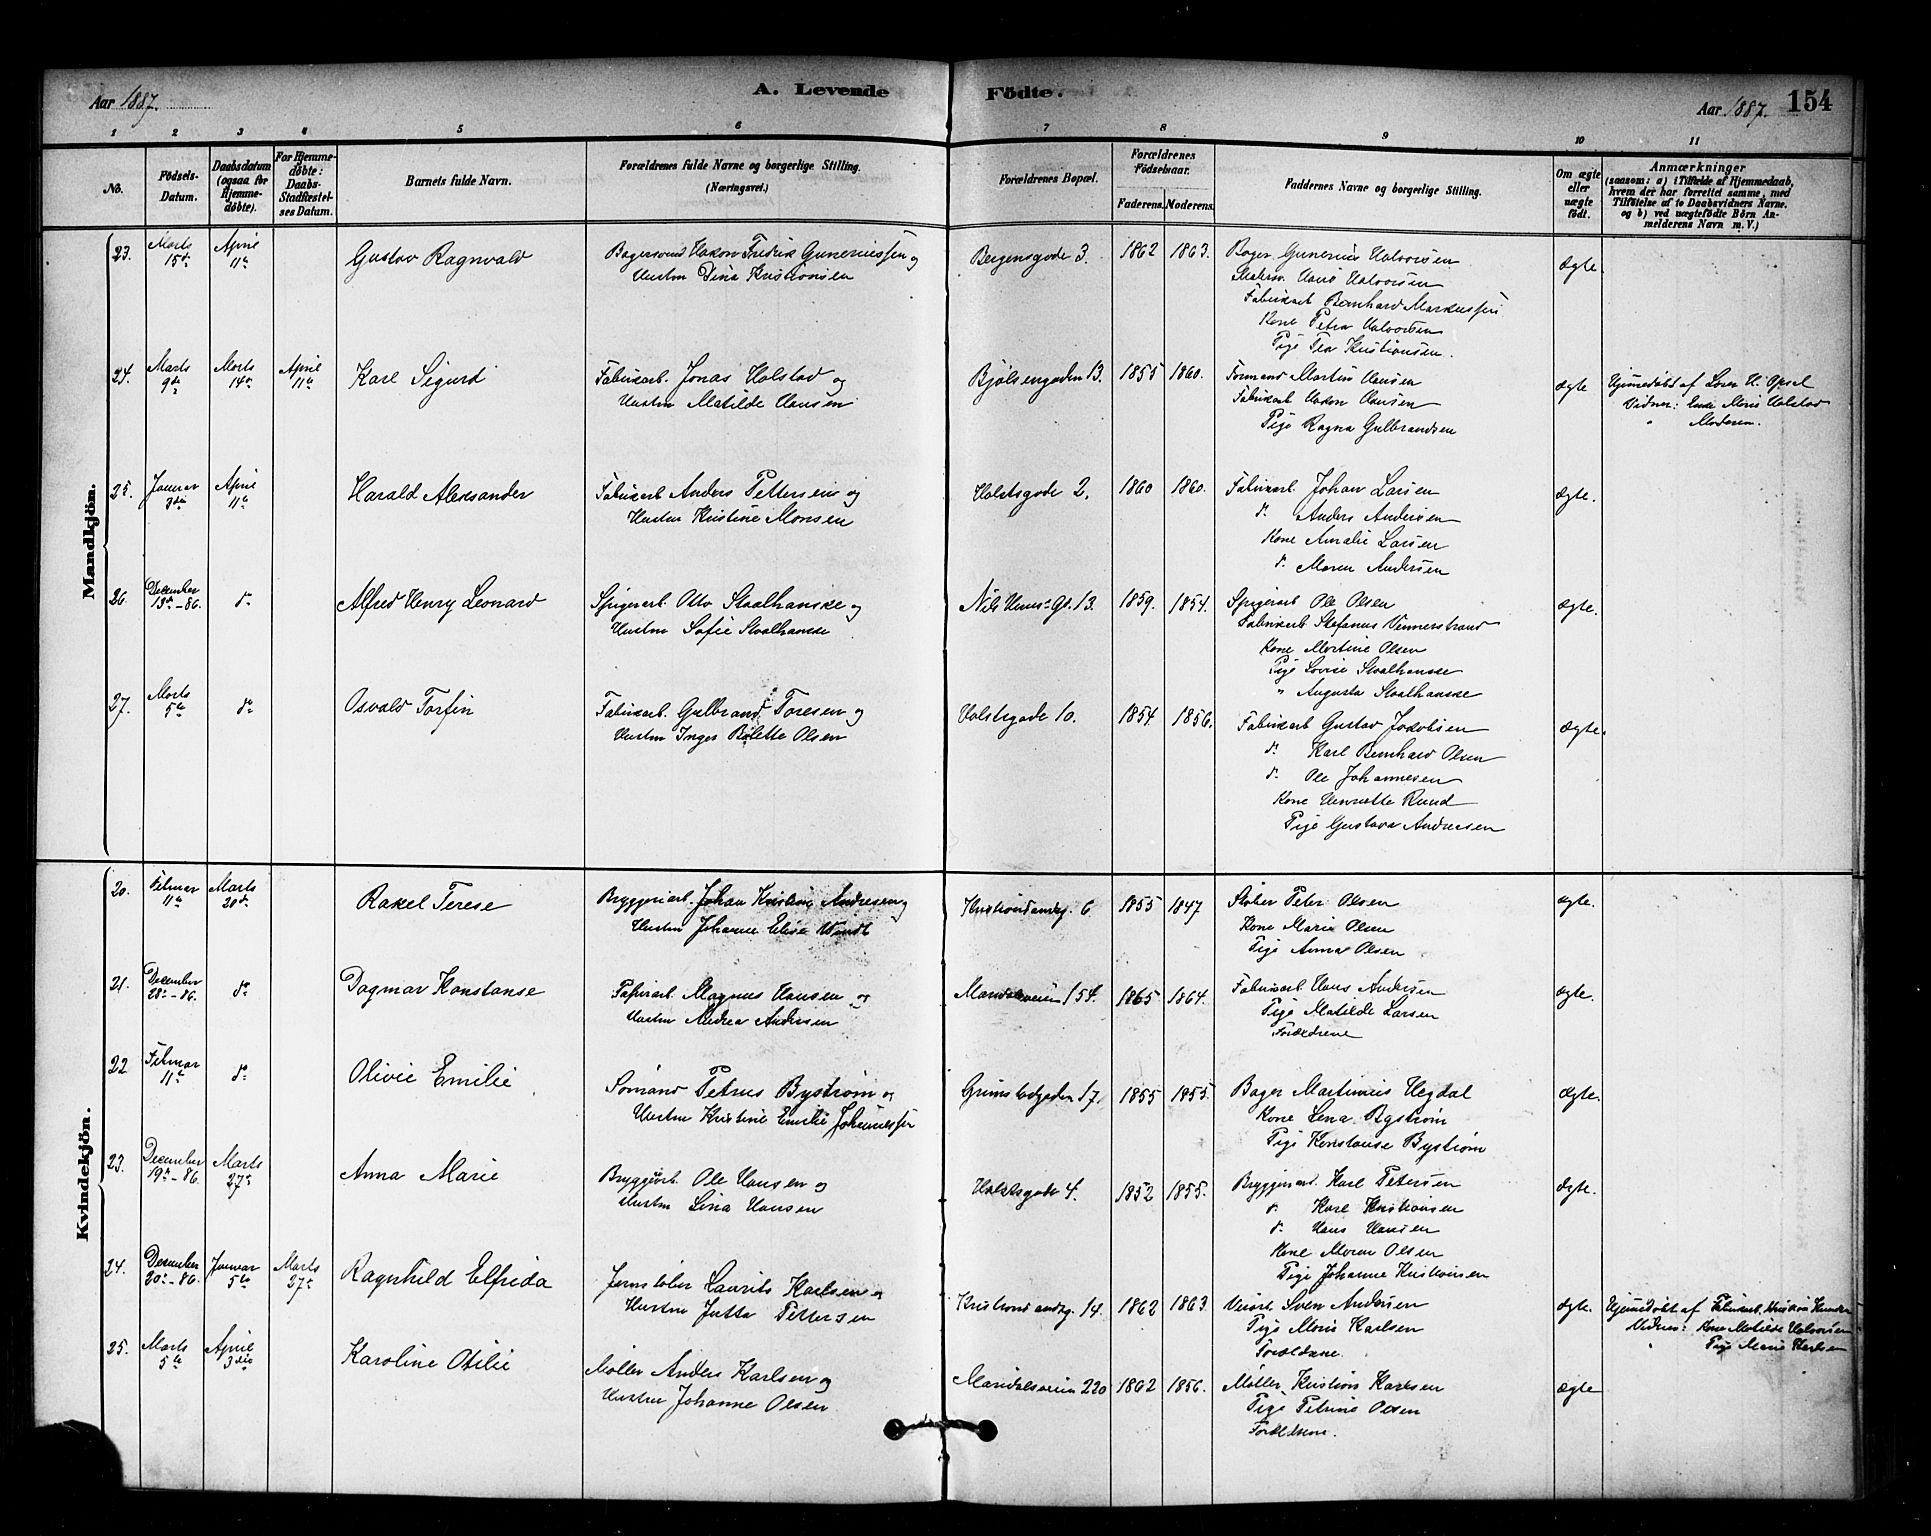 Aar 1887.
A. Levende Födte.
Aar 1887. 154
1 2 3 4 5 6 7 8 9 10 11
No.
Födsels-Datum.
Daabsdatum (ogsaa for Hjemme-döbte).
For Hjemme-döbte: Daabs-Stadfæstel-ses Datum.
Barnets fulde Navn.
Forældrenes fulde Navne og borgerlige Stilling. (Næringsvei.)
Forældrenes Bopæl.
Forældrenes Födselsaar.
Faderens. Moderens.
Faddernes Navne og borgerlige Stilling.
Om ægte eller uægte födt.
Anmærkninger
(saasom: a) i Tilfælde af Hjemmedaab, hvem der har forrettet samme, med Tilföielse af to Daabsvidners Navne. og b) ved uægtefödte Börn Anmelderens Navn m. V.)
Mandkjön.
23. Marts 15de April 11te Gustav Ragnvald
Bagersvend Hakon Fredrik Gunerussen og
Hustru Dina Kristiansen
Bergensgade 3. 1862 1863.
Bager Gunerius Halvorsen
Malersv. Hans Halvorsen
Fabrikarb Bernhard Markussen
Kone Petra Halvorsen
Pige Tea Kristiansen.
Ægte.
24. Marts 9de Marts 14de April 11te Karl Sigurd
Fabrikarb. Jonas Halstad og
Hustru Matilde Hansen
Bjølsengaden 13. 1855 1860.
Formand Martin Hansen
Fabrikarb Hakon Hansen
Pige Ragna Gulbrandsen
Ægte
Hjemmedøbt af Lover H. Opsal
Vidner: Enke Maris Halstad
" Moderen.
25. Januar 3die April 11te Harald Aleksander
Fabrikarb Anders Pettersen og
Hustru Kristine Monsen
Holstsgade 2. 1860 1860.
Fabrikarb. Johan Larsen
do Anders Andersen
Kone Amalie Larsen
do Maren Andersen
Ægte.
26. December 13de - 86. do Alfred Henry Leonard
Spigerarb. Otto Staalhanske og
Hustru Sofie Staalhanske
Nils Huus's G. 13. 1859. 1854.
Spigerarb Ole Olsen
Fabrikarb Stefanus Vennerstrand
Kone Martine Olsen
Pige Lovise Staalhanske
" Augusta Staalhanske
Ægte.
27. Marts 5te do Osvald Torfin
Fabrikarb. Gulbrand Toresen og
Hustru Inger Bolette Olsen
Holstsgade 10. 1854. 1856.
Fabrikarb Gustav Jakobsen
do Karl Bernhard Olsen
do Ole Johannesen
Kone Henriette Rund
Pige Gustava Andresen
Ægte.
Kvindekjön.
20. Februar 11te Marts 20de Rakel Terese
Bryggeriarb. Johan Kristian Andresen og
Hustru Johanne Elise Wendt
Kristiansandsg. 6 1855 1847
Støber Peter Olsen
Kone Marie Olsen
Pige Anna Olsen
Ægte.
21. December 28de - 86. do Dagmar Konstanse
Papirarb. Magnus Hansen og
Hustru Andrea Andersen
Maridalsveien 154. 1865 1864.
Fabrikarb Hans Andersen
Pige Matilde Larsen
Forældrene
Ægte.
22 Februar 11te do Olivie Emilie
Sømand Petrus Bystrøm og
Hustru Kristine Emilie Johannessen
Grimstadgaden 17. 1855 1855.
Bager Martinius Hegdal
Kone Lena Bystrøm
Pige Konstanse Bystrøm
Ægte.
23. December 19de - 86. Marts 27de Anna Marie
Bryggeriarb. Ole Hansen og
Hustru Lina Hansen
Holstsgade 4. 1852 1855.
Bryggeriarb. Karl Petersen
do Karl Kristiansen
do Hans Hansen
Kone Maren Olsen
Pige Johanne Kristiansen
Ægte.
24. December 20de - 86. Januar 5te Marts 27de Ragnhild Elfrida
Jernstøber Laurits Karlsen og
Hustru Jutta Pettersen
Kristiansandsg. 14. 1862 1863.
Veiarb. Sven Andersen
Pige Maris Karlsen
Forældrene.
Ægte.
Hjemmedøbt af Fabrikarb. Kristian
Vidner: Kone Matilde Halvorsen
" Pige Marie Karlsen
25. Marts 5te April 3die Karoline Otilie
Møller Anders Karlsen og
Hustru Johanne Olsen
Maridalsveien 220 1862 1856.
Møller Kristian Karlsen
Pige Petrine Olsen
Forældrene.
Ægte